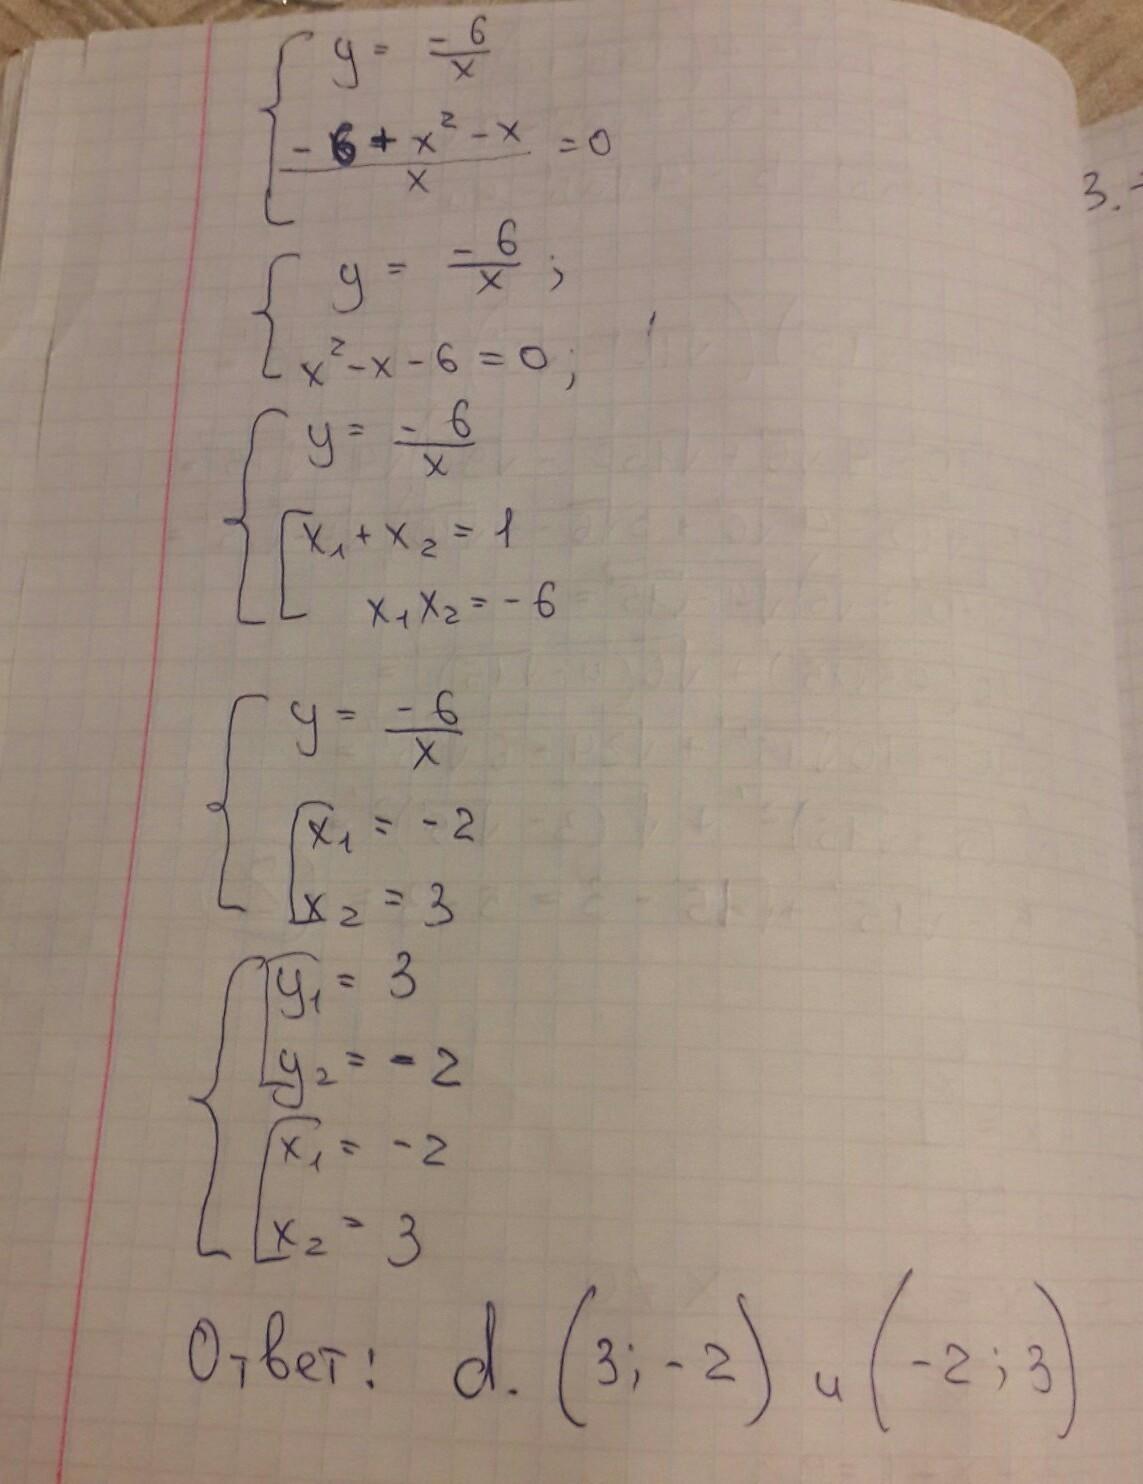 y = -6/x
(-6 + x² - x)/x = 0
3.
y = -6/x ;
x² - x - 6 = 0 ;
y = -6/x
x₁ + x₂ = 1
x₁x₂ = -6
y = -6/x
x₁ = -2
x₂ = 3
y₁ = 3
y₂ = -2
x₁ = -2
x₂ = 3
Ответ: d. (3; -2) и (-2; 3)